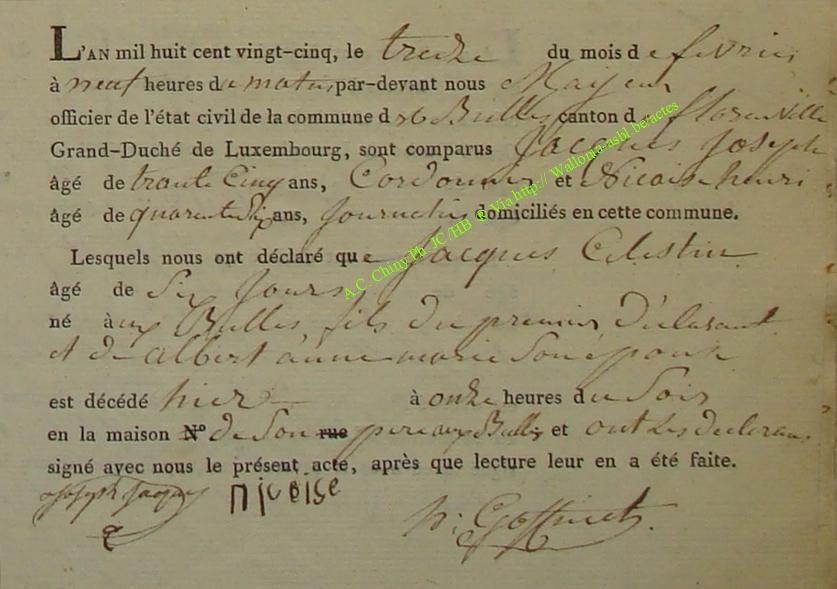 L'AN mil huit cent vingt-cinq, le treize du mois de fevrier
à neuf heures du matin par-devant nous Mayeur
officier de l'état civil de la commune des Bulles canton de florenville
Grand-Duché de Luxembourg, sont comparus Jacques Joseph
âgé de trente Cinq ans, Cordonnier et Nicaise henri
âgé de quarente ans, Journalier domiciliés en cette commune.
Lesquels nous ont déclaré que Jacques Celestin
âgé de Six Jours
né aux Bulles fils du premier Déclarant
et de albert anne marie Son épouse
est décédé hier à onze heures du Soir
en la maison N° de Son rue pere aux Bulles et ont Les declarans
signé avec nous le présent acte, après que lecture leur en a été faite.
Joseph Jacques nicaise h: Goffinet
A.C. Chiny Ph JC/HB ® Via http:// Wallonia-asbl.be/actes